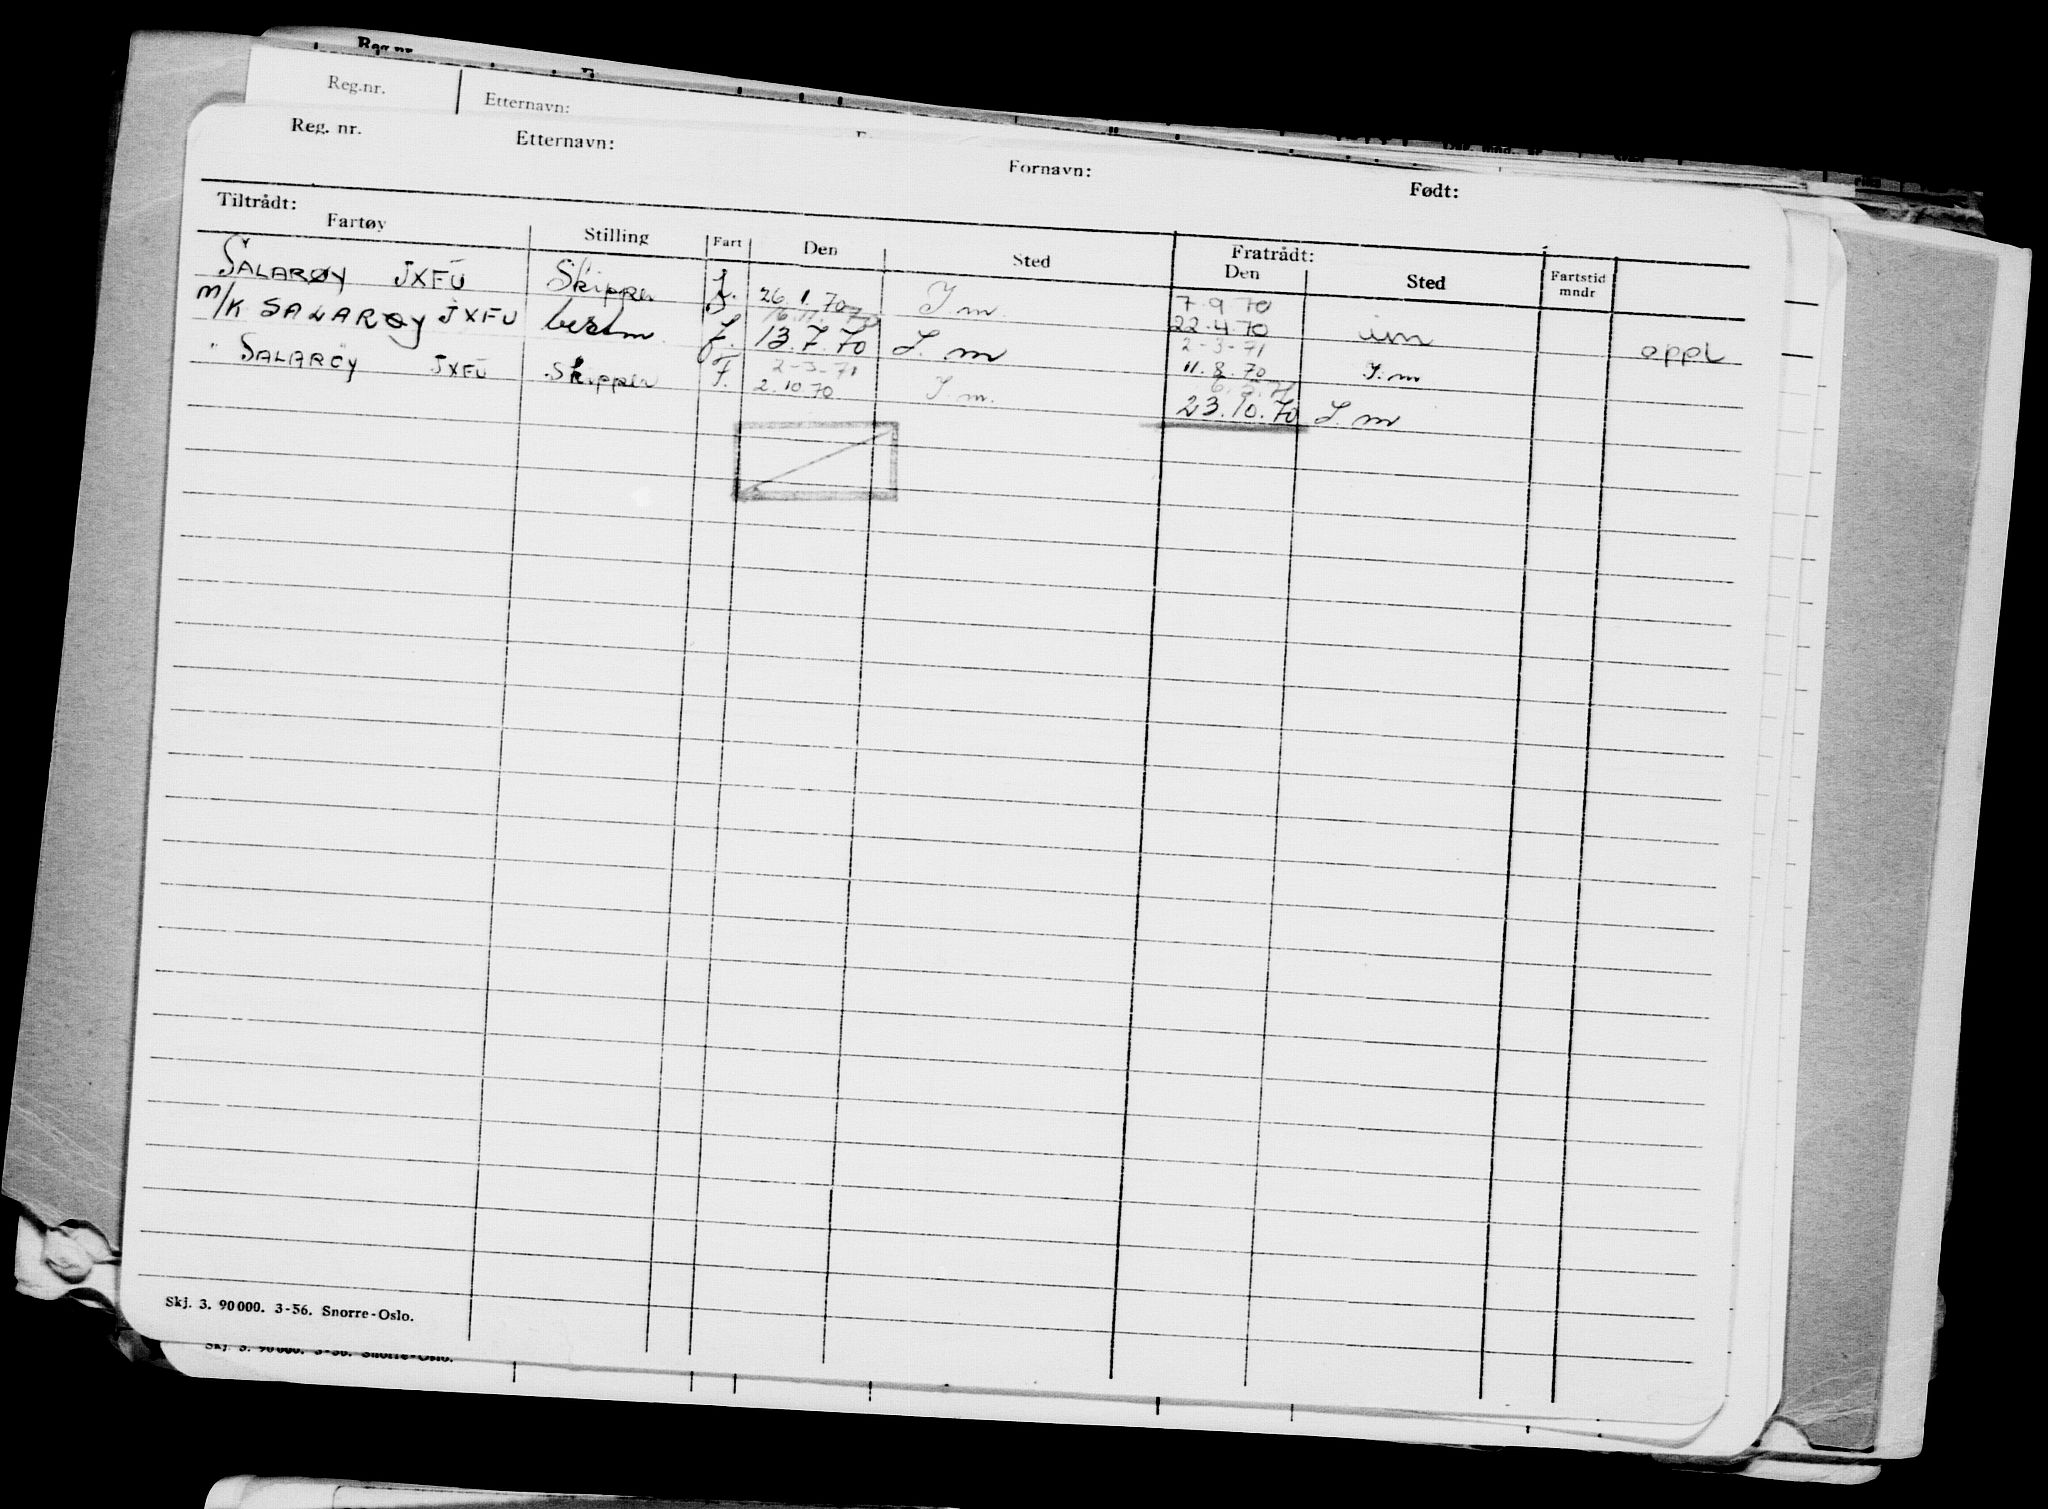 Reg.nr.
Reg.nr. Etternavn:
Reg. nr. Etternavn: Fornavn: Født:
Tiltrådt: Fratrådt:
Fartøy Stilling Fart Den Sted Den Sted Fartstid mndr
7.9.70
SALARØY JXFU Skipper 26.1.70 I m 22.4.70 im
16.11.70 2-3-71
M/K SALARØY JXFU bestm. f. 13.7.70 I. m 11.8.70 I.m oppl
2-3-71
" SALARØY JXFU Skipper F. 2.10.70 I m. 23.10.70 I. m
Skj. 3. 90000. 3-56. Snorre-Oslo.
Skj. 3. 90000. 3-56. Snorre-Oslo.